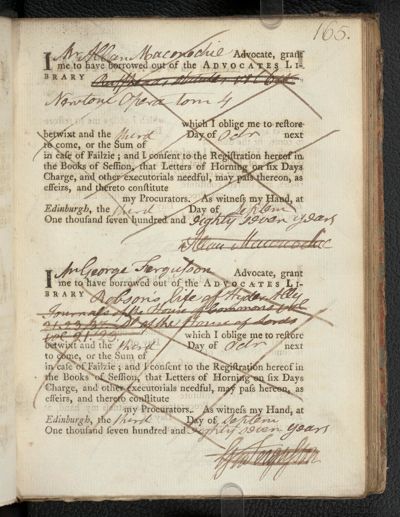 165.
I Mr Allan Maconochie Advocate, grant
me to have borrowed out of the ADVOCATES LI-
BRARY
Newtoni Opera tom 4
which I oblige me to restore
betwixt and the third Day of Octr next
to come, or the Sum of
in case of Failzie; and I consent to the Registration hereof in
the Books of Session, that Letters of Horning on six Days
Charge, and other executorials needful, may pass thereon, as
effeirs, and thereto constitute
my Procurators. As witness my Hand, at
Edinburgh, the third Day of Septem
One thousand seven hundred and Eighty seven years
Allan Maconochie
I Mr George Fergusson Advocate, grant
me to have borrowed out of the ADVOCATES LI-
BRARY Robsons life of Hyder Ally
Journals of the House of Commons
of the House of Lords
which I oblige me to restore
betwixt and the third Day of Octr next
to come, or the Sum of
in case of Failzie; and I consent to the Registration hereof in
the Books of Session, that Letters of Horning on six Days
Charge, and other executorials needful, may pass hereon, as
effeirs, and thereto constitute
my Procurators. As witness my Hand, at
Edinburgh, the third Day of Septem
One thousand seven hundred and Eighty seven years
Geo Fergusson